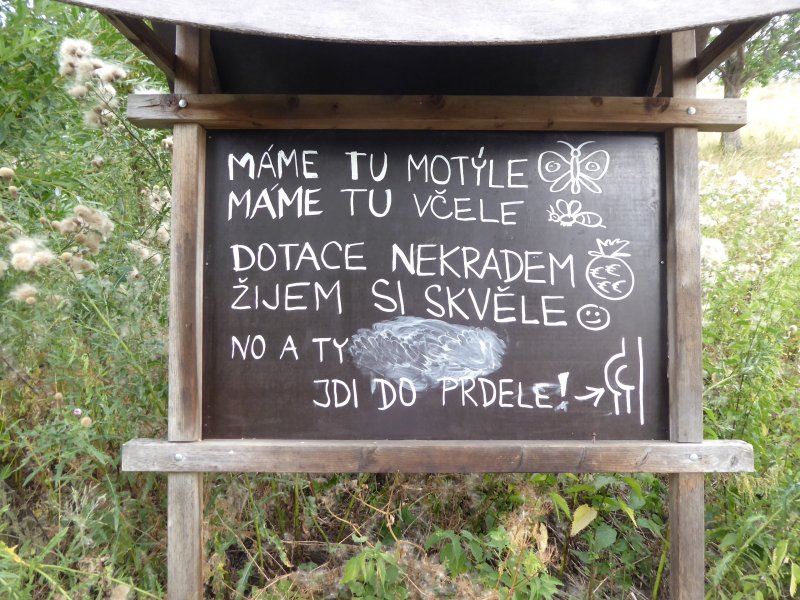 MÁME TU MOTÝLE
MÁME TU VČELE
DOTACE NEKRADEM
ŽIJEM SI SKVĚLE
NO A TY
JDI DO PRDELE!